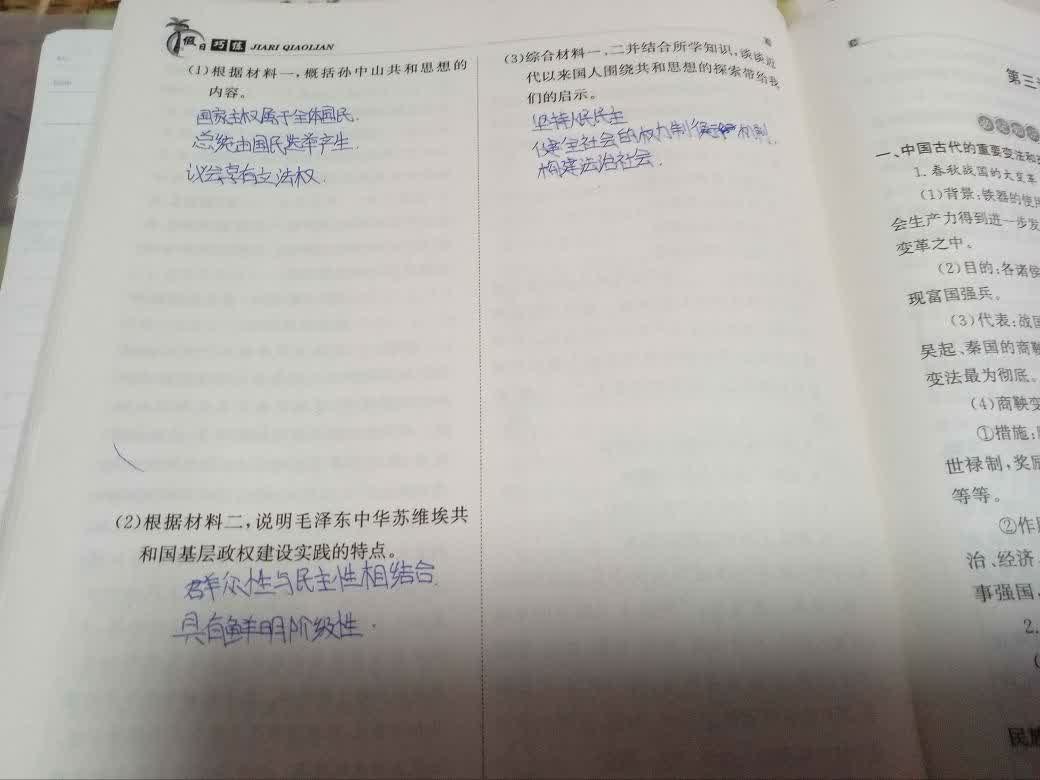 假日巧练 JIARI QIAOLIAN
(1)根据材料一,概括孙中山共和思想的
内容。
国家主权属于全体国民.
总统由国民选举产生.
议会享有立法权.
(2)根据材料二,说明毛泽东中华苏维埃共
和国基层政权建设实践的特点。
群众性与民主性相结合.
具有鲜明阶级性.
(3)综合材料一、二并结合所学知识,谈谈近
代以来国人围绕共和思想的探索带给我
们的启示。
坚持人民民主
健全社会的权力制约机制.
构建法治社会.
第三
一、中国古代的重要变法和
1. 春秋战国的大变革
(1)背景:铁器的使用
会生产力得到进一步发
变革之中。
(2)目的:各诸侯
现富国强兵。
(3)代表:战国
吴起、秦国的商鞅
变法最为彻底。
(4)商鞅变
①措施:
世禄制,奖励
等等。
②作用
治、经济
事强国,
2.
(
民族